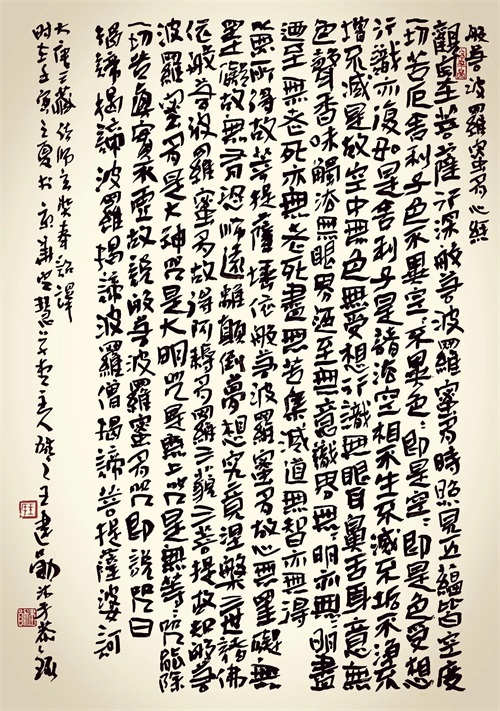 般若波羅蜜多心經
觀自在菩薩行深般若波羅蜜多時照見五蘊皆空度
一切苦厄舍利子色不異空空不異色色即是空空即是色受想
行識亦復如是舍利子是諸法空相不生不滅不垢不淨不
增不減是故空中無色無受想行識無眼耳鼻舌身意無
色聲香味觸法無眼界迺至無意識界無無明亦無無明盡
迺至無老死亦無老死盡無苦集滅道無智亦無得
以無所得故菩提薩埵依般若波羅蜜多故心無罣礙無
罣礙故無有恐怖遠離顛倒夢想究竟涅槃三世諸佛
依般若波羅蜜多故得阿耨多羅三藐三菩提故知般若
波羅蜜多是大神咒是大明咒是無上咒是無等等咒能除
一切苦真實不虛故說般若波羅蜜多咒即說咒曰
揭諦揭諦波羅揭諦波羅僧揭諦菩提薩婆訶
大唐三藏法師玄奘奉詔譯
時在壬寅之夏於京華空慧主人王建勛